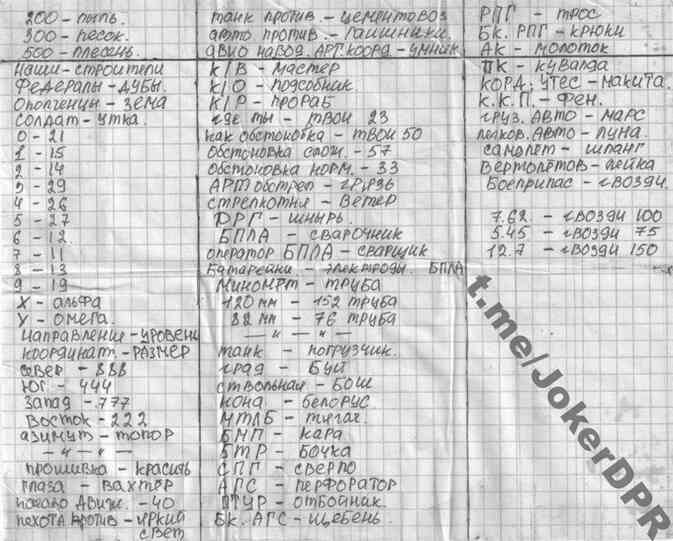 200 - пыль.
300 - песок.
500 - плесень.
Наши - строители
Федералы - дубы.
Ополченцы - зема
Солдат - утка.
0 - 21
1 - 15
2 - 14
3 - 29
4 - 26
5 - 27
6 - 12
7 - 11
8 - 13
9 - 19
X - альфа
У - омега.
направление - уровень
координат. - размер
север - 888
Юг - 444
Запад - 777
Восток - 222
азимут - топор
— " — " —
прошивка - красить
глаза - вахтёр
начало движ. - 40
пехота против - яркий
свет
танк против. - цементовоз
авто против. - гаишники.
авио навод. арт. коорд. - умник
К/В - мастер
К/О - подсобник.
К/Р - прораб
где ты - твои 23
как обстановка - твои 50
Обстановка слож. - 57
Обстановка норм. - 33
АРТ обстрел - грязь
стрелкотня - ветер
ДРГ - шнырь.
БПЛА - сварочник
оператор БПЛА - сварщик
Батарейки - электроды. БПЛА
Миномёт - труба
120 мм - 152 труба
82 мм - 76 труба
— " — " —
танк - погрузчик.
град - Буй
ствольная - Бош
нона - белорус
МТЛБ - тягач.
БМП - Кара
БТР - Бочка
СПГ - сверло
АГС - перфоратор
ПТУР - отбойник.
Бк. АГС - щебень.
РПГ - трос
Бк. РПГ - крюки
Ак - молоток
Пк - кувалда
КОРД, Утес - макита.
К.К.П. - Фен.
груз. авто - марс
легков. авто - луна.
самолет - шланг
Вертолётов - лейка
Боеприпас - гвозди.
7.62. - гвозди 100
5.45 - гвозди 75
12.7 - гвозди 150
t.me/JokerDPR